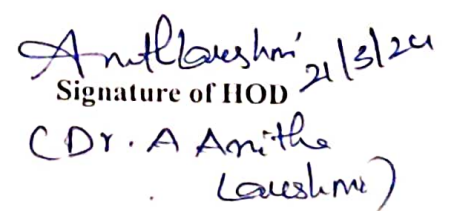 Anithlakshmi 21/3/24
Signature of HOD
(Dr. A Anitha
Lakshmi)